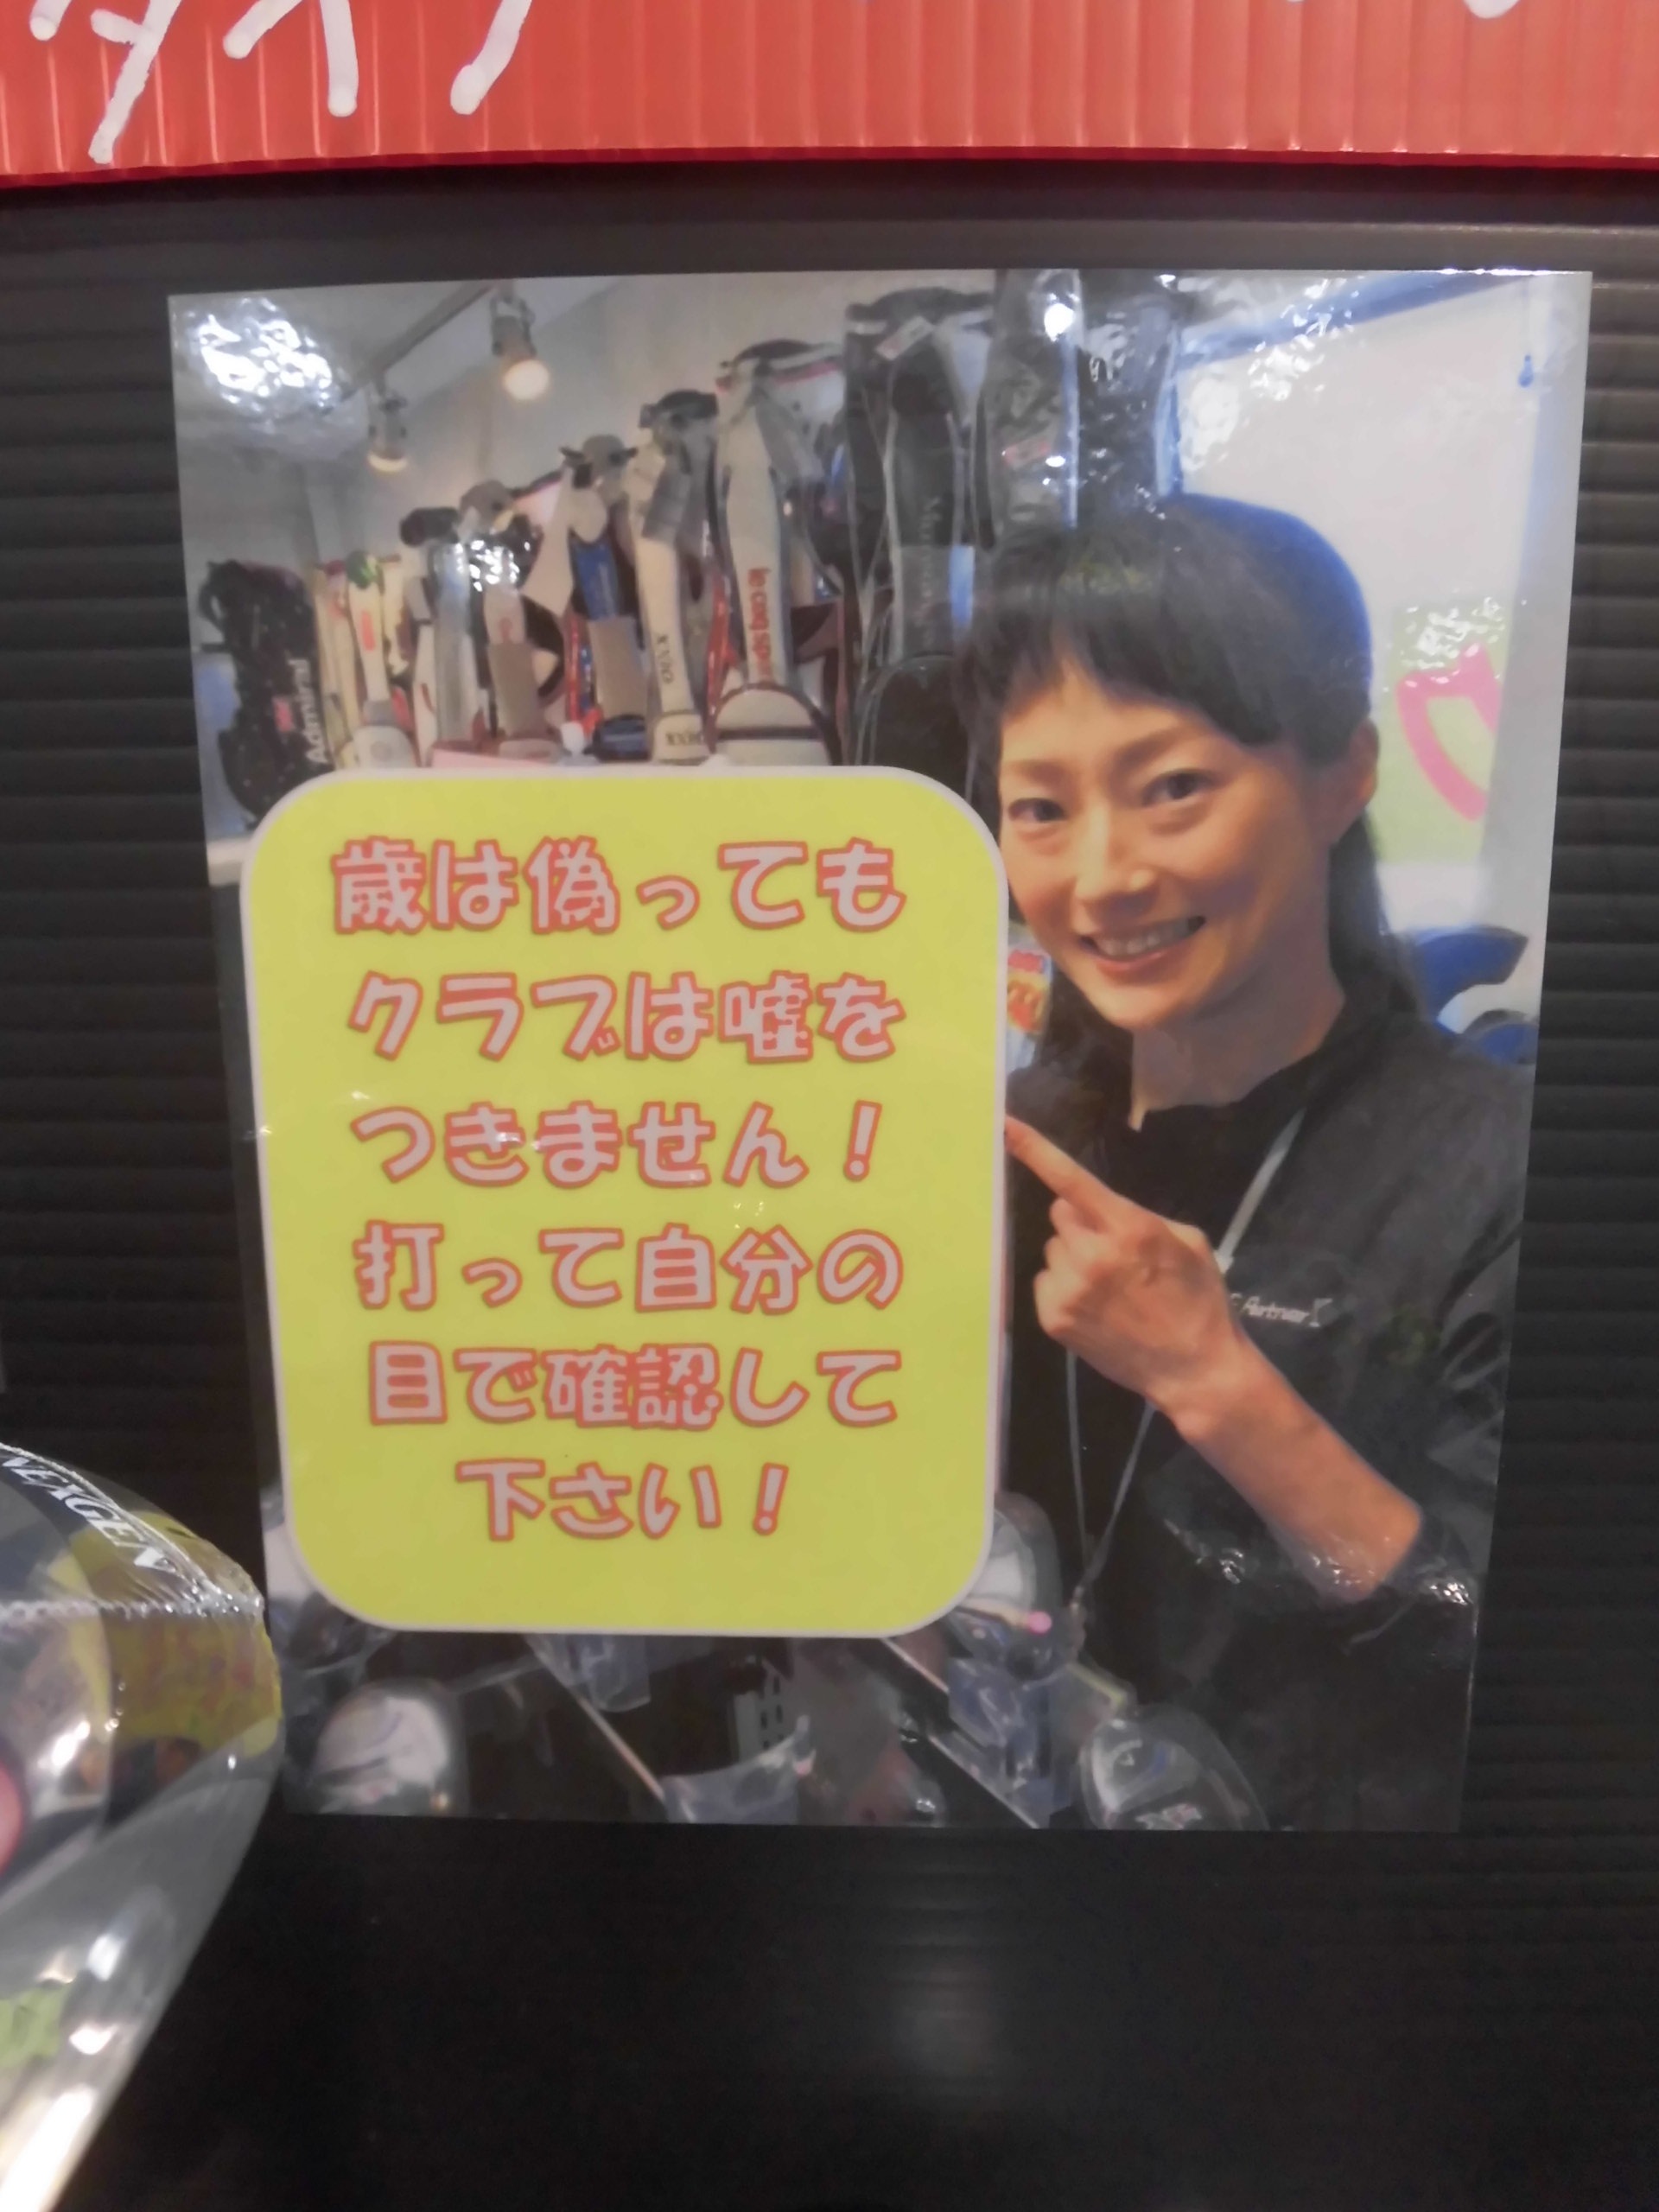 タイ
Admiral
XXIO
le coq sp
Mizuno
歳は偽っても
クラブは嘘を
つきません！
打って自分の
目で確認して
下さい！
Partner
NEXGEN